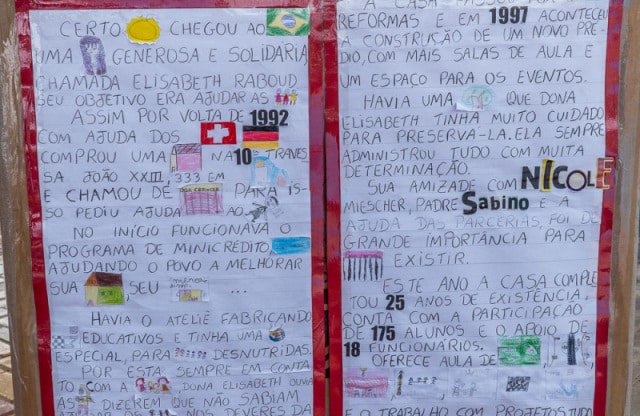 CERTO CHEGOU AO
UMA GENEROSA E SOLIDARIA
CHAMADA ELISABETH RABOUD.
SEU OBJETIVO ERA AJUDAR AS
ASSIM POR VOLTA DE 1992
COM AJUDA DOS
COMPROU UMA NA 10 TRAVES
SA JOÃO XXIII, 333 EM
E CHAMOU DE PARA IS-
SO PEDIU AJUDA AO
NO INÍCIO FUNCIONAVA O
PROGRAMA DE MINICRÉDITO,
AJUDANDO O POVO A MELHORAR
SUA SEU ...
HAVIA O ATELIÊ FABRICANDO
EDUCATIVOS E TINHA UMA
ESPECIAL, PARA DESNUTRIDAS.
POR ESTA SEMPRE EM CONTA
TO COM A DONA ELISABETH OUVIA
AS DIZEREM QUE NÃO SABIAM
NOS DEVERES DA
A CASA
REFORMAS E EM 1997 ACONTECEU
A CONSTRUÇÃO DE UM NOVO PRÉ-
DIO, COM MAIS SALAS DE AULA E
UM ESPAÇO PARA OS EVENTOS.
HAVIA UMA QUE DONA
ELISABETH TINHA MUITO CUIDADO
PARA PRESERVA-LA. ELA SEMPRE
ADMINISTROU TUDO COM MUITA
DETERMINAÇÃO.
SUA AMIZADE COM NICOLE
MIESCHER, PADRE Sabino E A
AJUDA DAS PARCERIAS, FOI DE
GRANDE IMPORTÂNCIA PARA
EXISTIR.
ESTE ANO A CASA COMPLE
TOU 25 ANOS DE EXISTÊNCIA,
CONTA COM A PARTICIPAÇÃO
DE 175 ALUNOS E O APOIO DE
18 FUNCIONÁRIOS.
OFERECE AULA DE
E O TRABALHO COM PROJETOS, TUDO